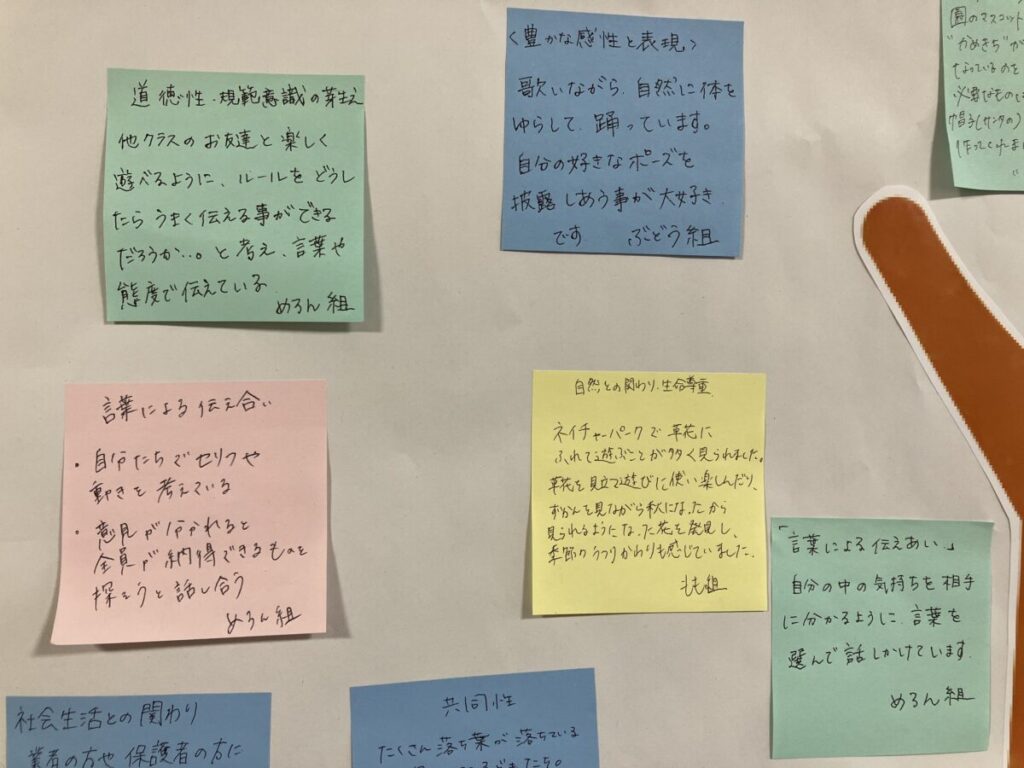 道徳性・規範意識の芽生え
他クラスのお友達と楽しく
遊べるように、ルールをどうし
たらうまく伝える事ができる
だろうか…。と考え、言葉や
態度で伝えている
めろん組
〈豊かな感性と表現〉
歌いながら、自然に体を
ゆらして、踊っています。
自分の好きなポーズを
披露しあう事が大好き
です ぶどう組
園のマスコット
"かめきち"が
なっているのを
必要なものは
帽子(サンタの)
作ってくれま
言葉による伝え合い
・自分たちでセリフや
動きを考えている
・意見が分かれると
全員が納得できるものを
探そうと話し合う
めろん組
自然との関わり・生命尊重
ネイチャーパークで草花に
ふれて遊ぶことが多く見られました。
草花を見立て遊びに使い楽しんだり、
ずかんを見ながら秋になったから
見られるようになった花を発見し、
季節のうつりかわりも感じていました。
もも組
「言葉による伝えあい」
自分の中の気持ちを相手
に分かるように、言葉を
選んで話しかけています。
めろん組
社会生活との関わり
業者の方や保護者の方に
共同性
たくさん落ち葉が落ちている